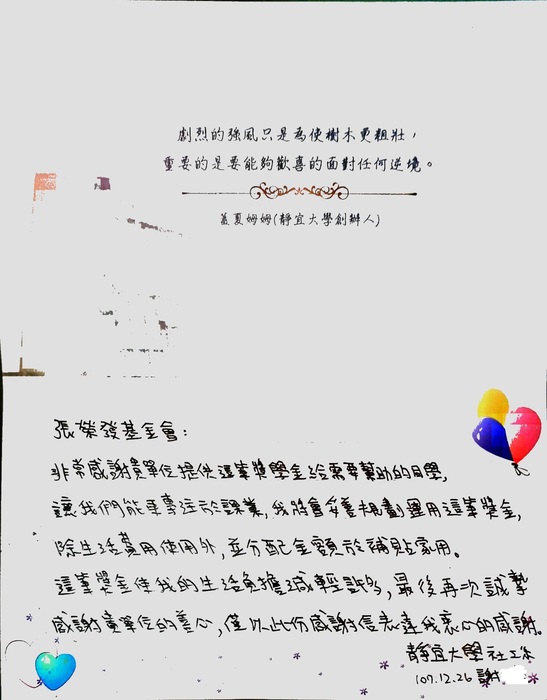 劇烈的強風只是為使樹木更粗壯，
重要的是要能夠歡喜的面對任何逆境。
蓋夏姆姆(靜宜大學創辦人)
張榮發基金會：
非常感謝貴單位提供這筆獎學金給需要幫助的同學，
讓我們能更專注於課業，我將會妥善規劃運用這筆獎金，
除生活費用使用外，並分配金額於補貼家用。
這筆獎金使我的生活負擔減輕許多，最後再次誠摯
感謝貴單位的善心，僅以此份感謝信表達我衷心的感謝。
靜宜大學社工系
107.12.26 謝